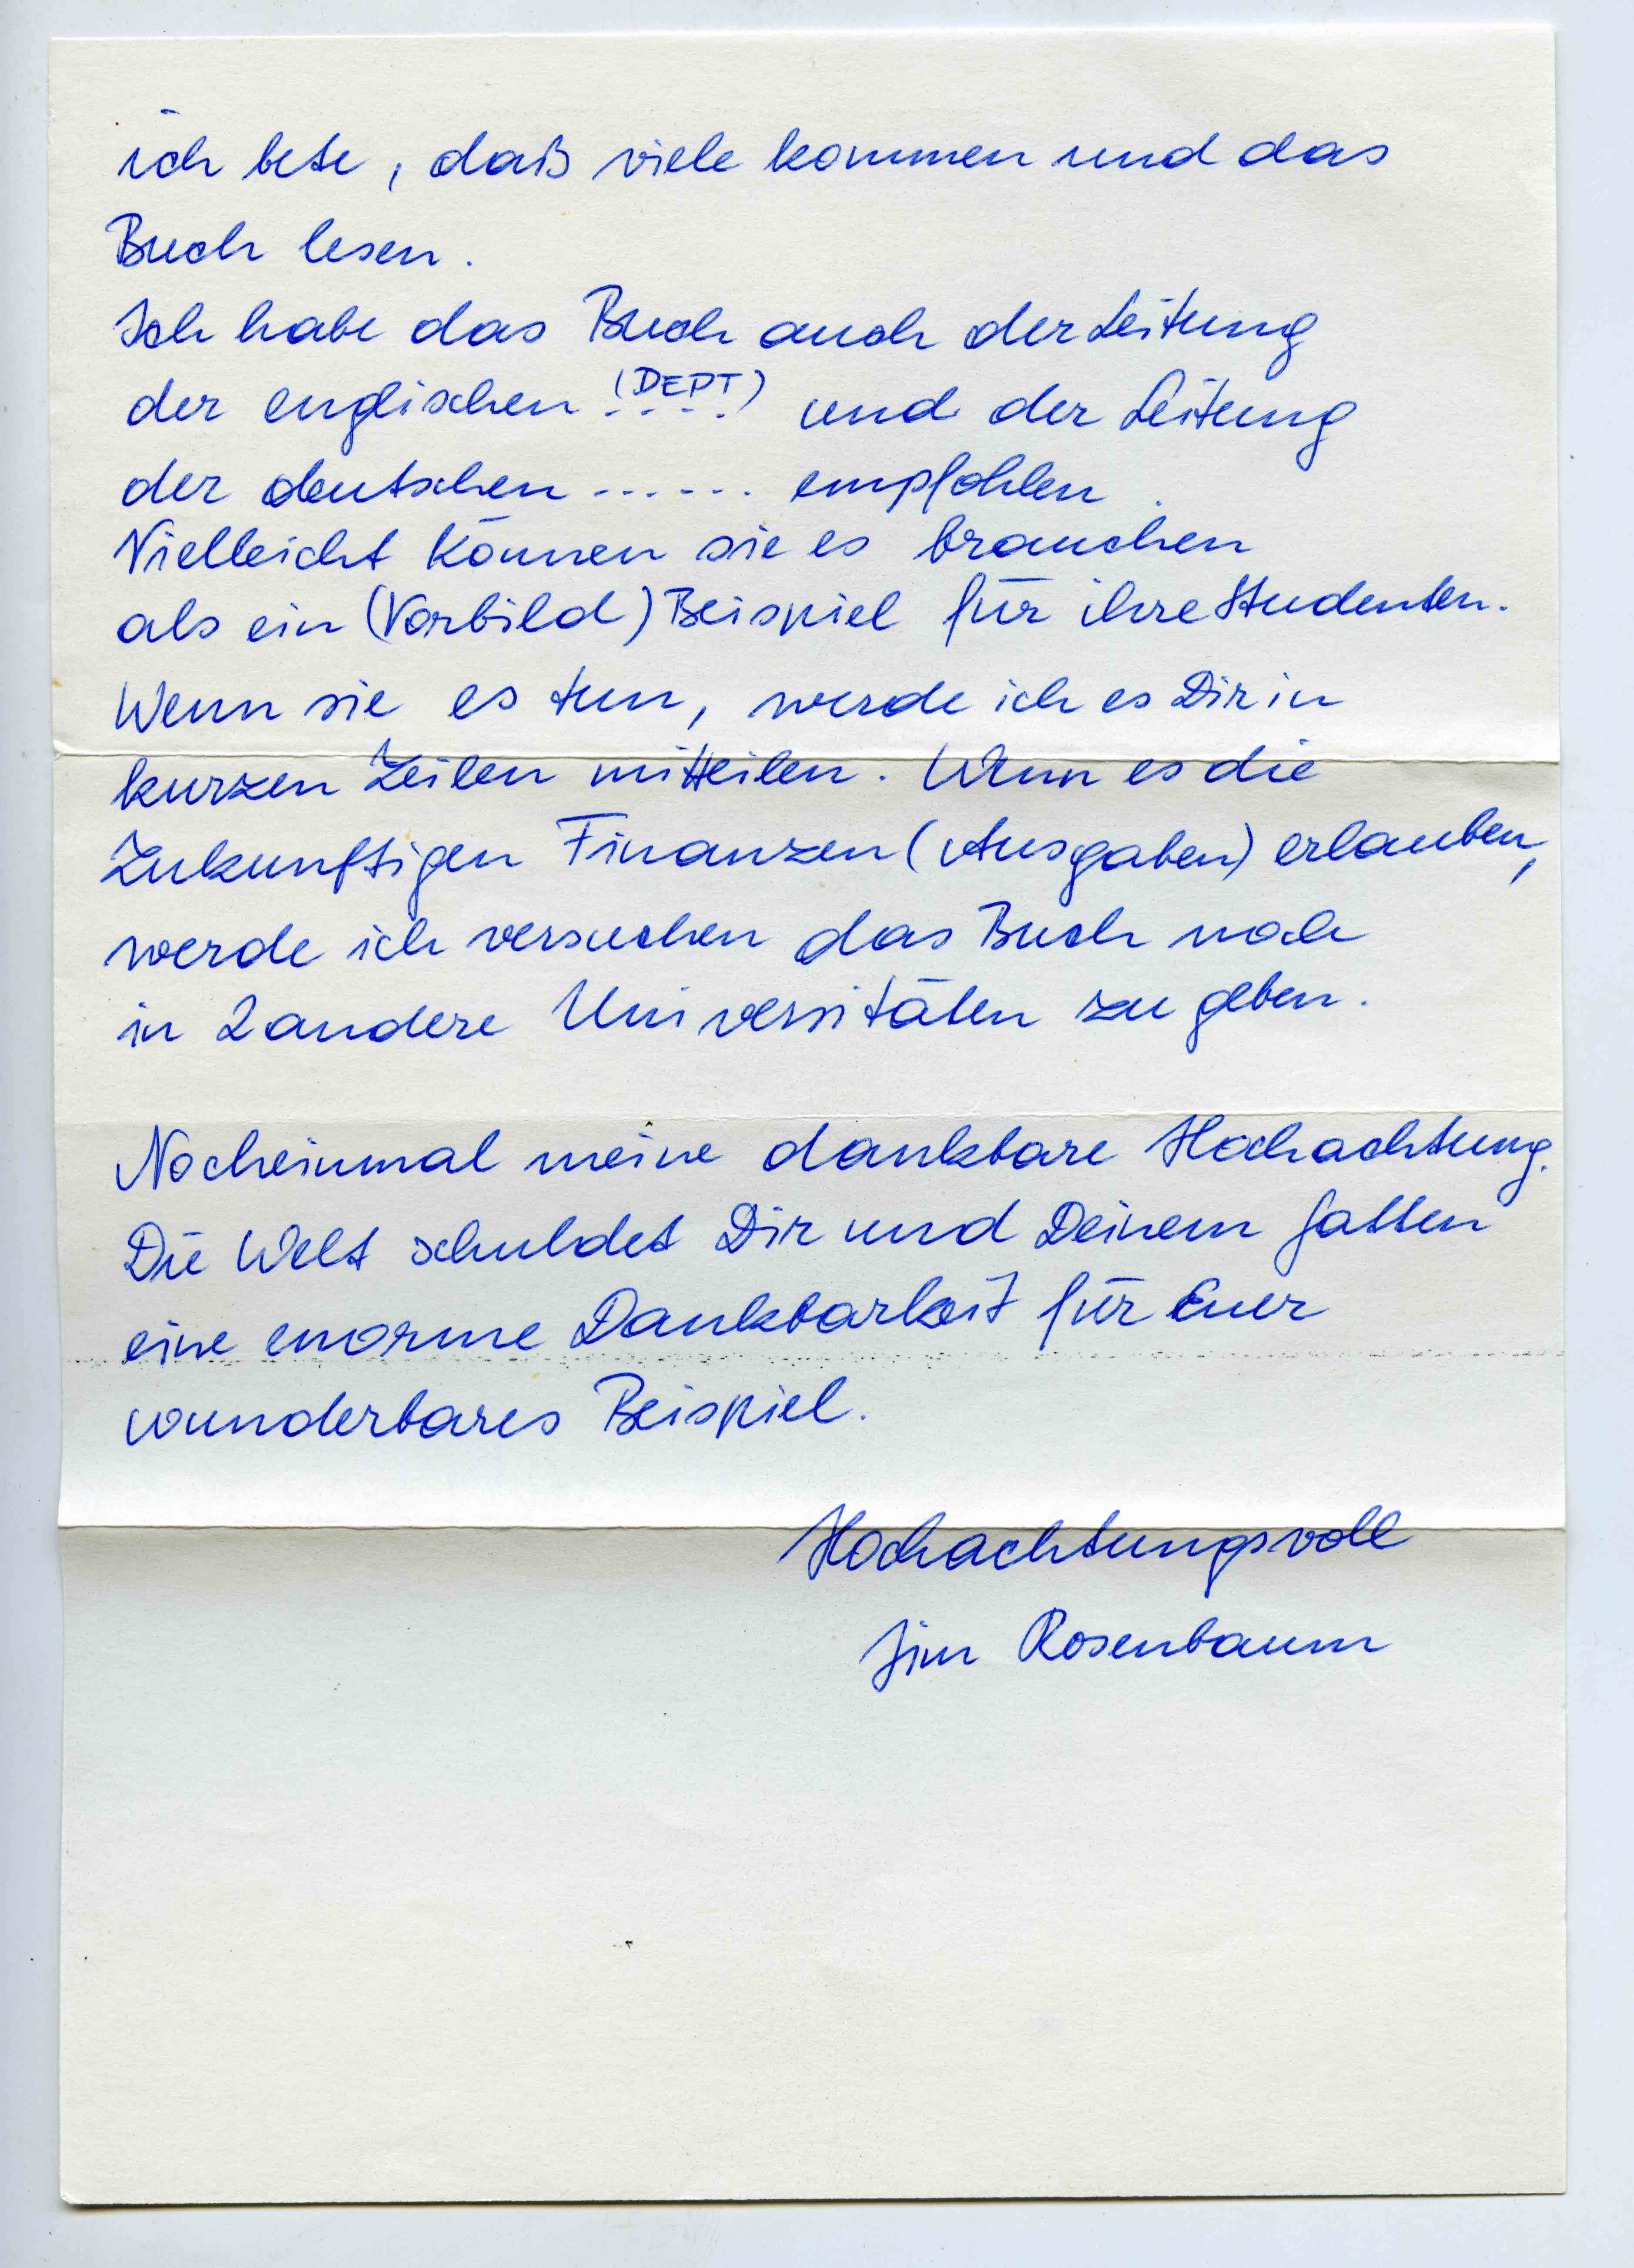 ich bete, daß viele kommen und das
Buch lesen.
Ich habe das Buch auch der Leitung
der englischen (DEPT) und der Leitung
der deutschen ...... empfohlen.
Vielleicht können sie es brauchen
als ein (Vorbild) Beispiel für ihre Studenten.
Wenn sie es tun, werde ich es Dir in
kurzen Zeilen mitteilen. Wenn es die
Zukunftigen Finanzen (Ausgaben) erlauben,
werde ich versuchen das Buch noch
in 2 andere Universitäten zu geben.
Nocheinmal meine dankbare Hochachtung.
Die Welt schuldet Dir und Deinem Gatten
eine enorme Dankbarkeit für Euer
wunderbares Beispiel.
Hochachtungsvoll
Jim Rosenbaum